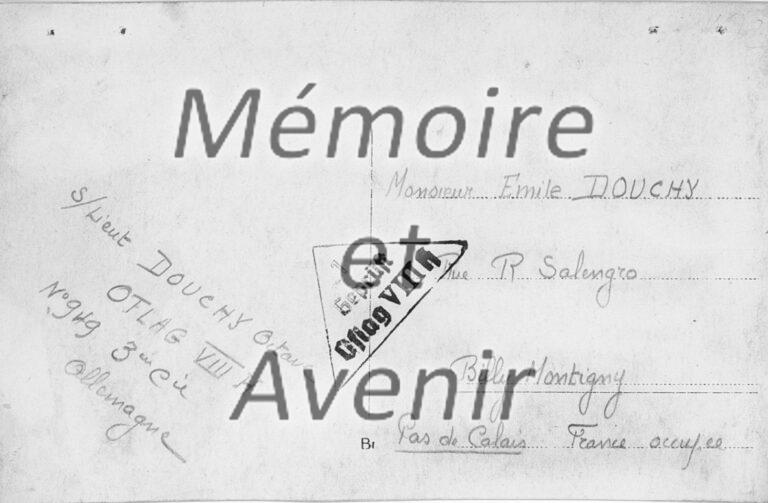 Mémoire
et
Avenir
Monsieur Emile DOUCHY
Rue R Salengro
Billy Montigny
Pas de Calais France occupée
S/Lieut DOUCHY
OTLAG VIII A
N° 949 3em Cie
Allemagne
Geprüft
Oflag VIII A